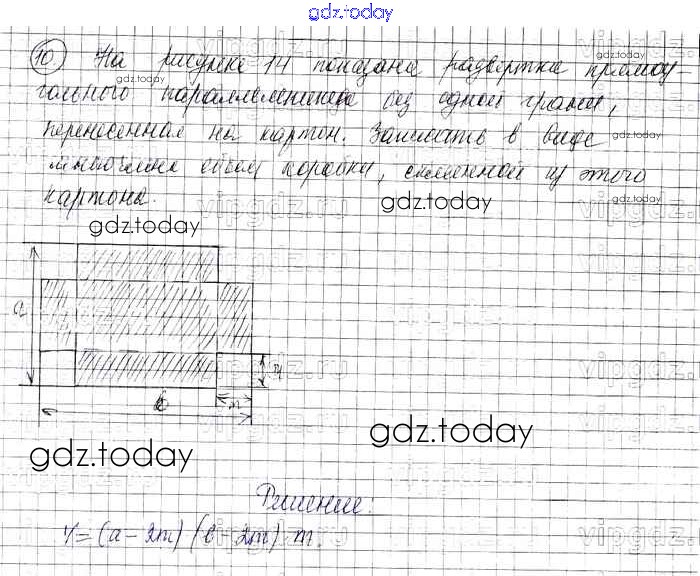 gdz.today
10 На рисунке 14 показана развертка прямоу-
gdz.today
гольного параллелепипеда без одной грани,
перенесенная на картон. Записать в виде
gdz.today
многочлена объем коробки, склеенной из этого
gdz.today
картона.
gdz.today
vipgdz.ru
a
m
b
m
gdz.today
gdz.today
Решение:
V = (a - 2m) (b - 2m) m.